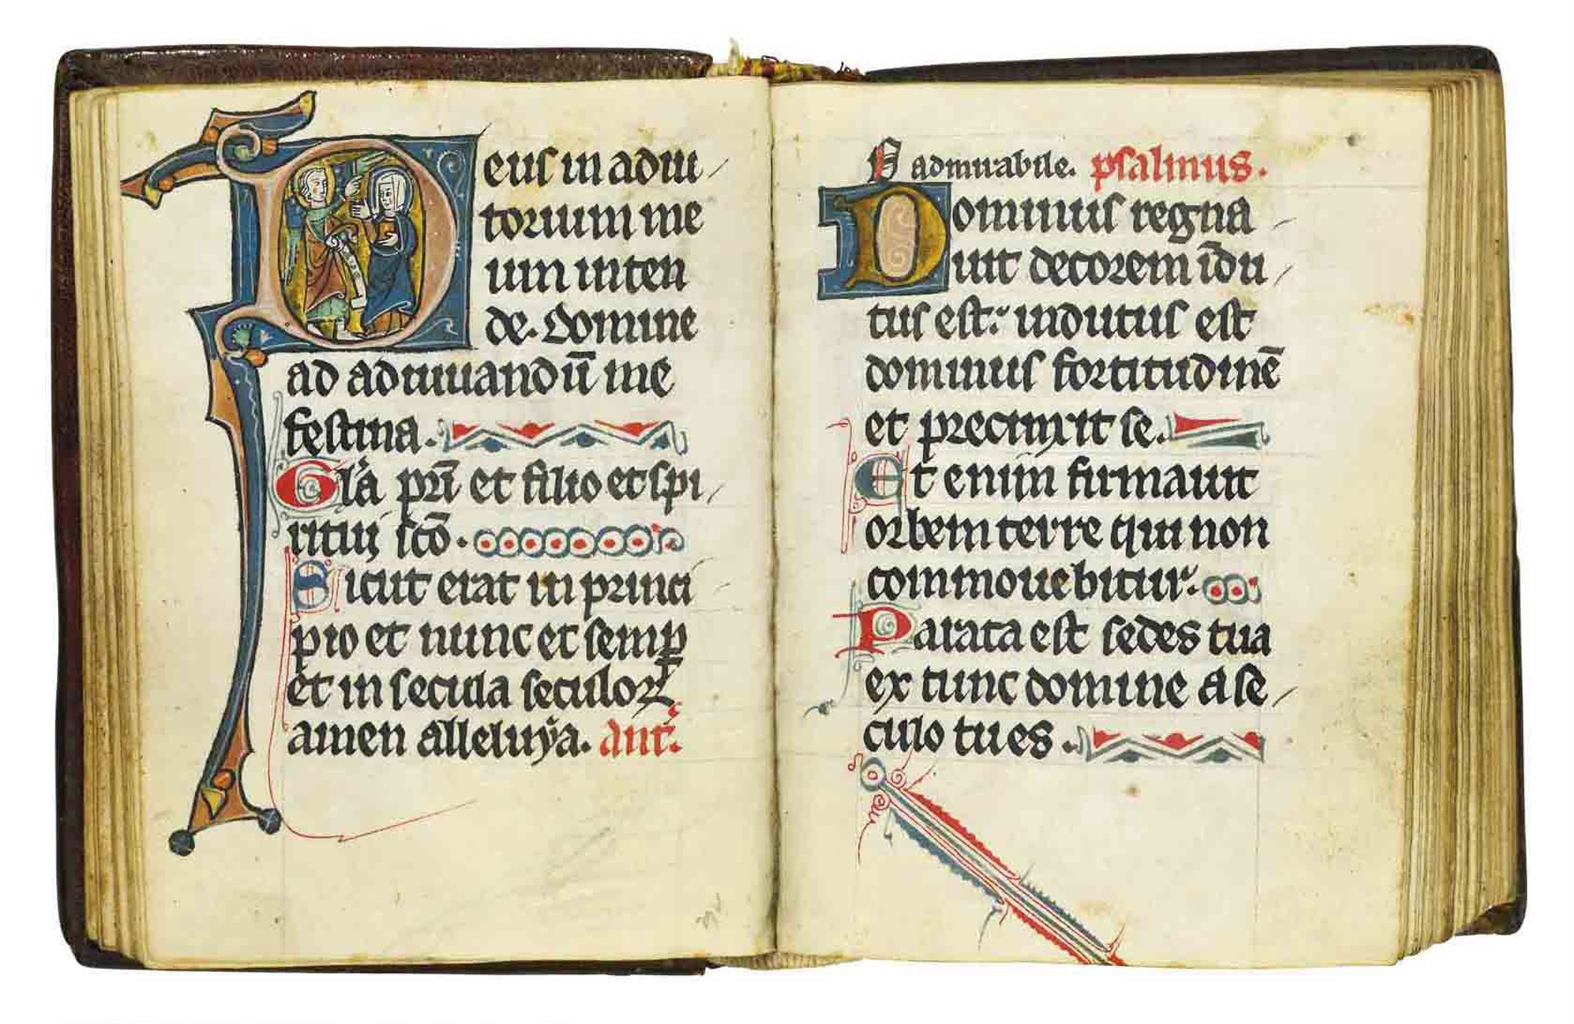 Deus in adiu
torium me
um inten
de. Domine
ad adiuuandū me
festina.
Gl'a pri̅ et filio et spi
ritui sc̅o.
Sicut erat in princi
pio et nunc et semꝑ
et in secula seculoꝝ
amen alleluya. ant'.
admirabile. psalmus.
Dominus regna
uit decorem īdu
tus est: indutus est
dominus fortitudinē
et precinxit se.
Et enim firmauit
orbem terre qui non
commouebitur.
Parata est sedes tua
ex tunc domine a se
culo tu es.